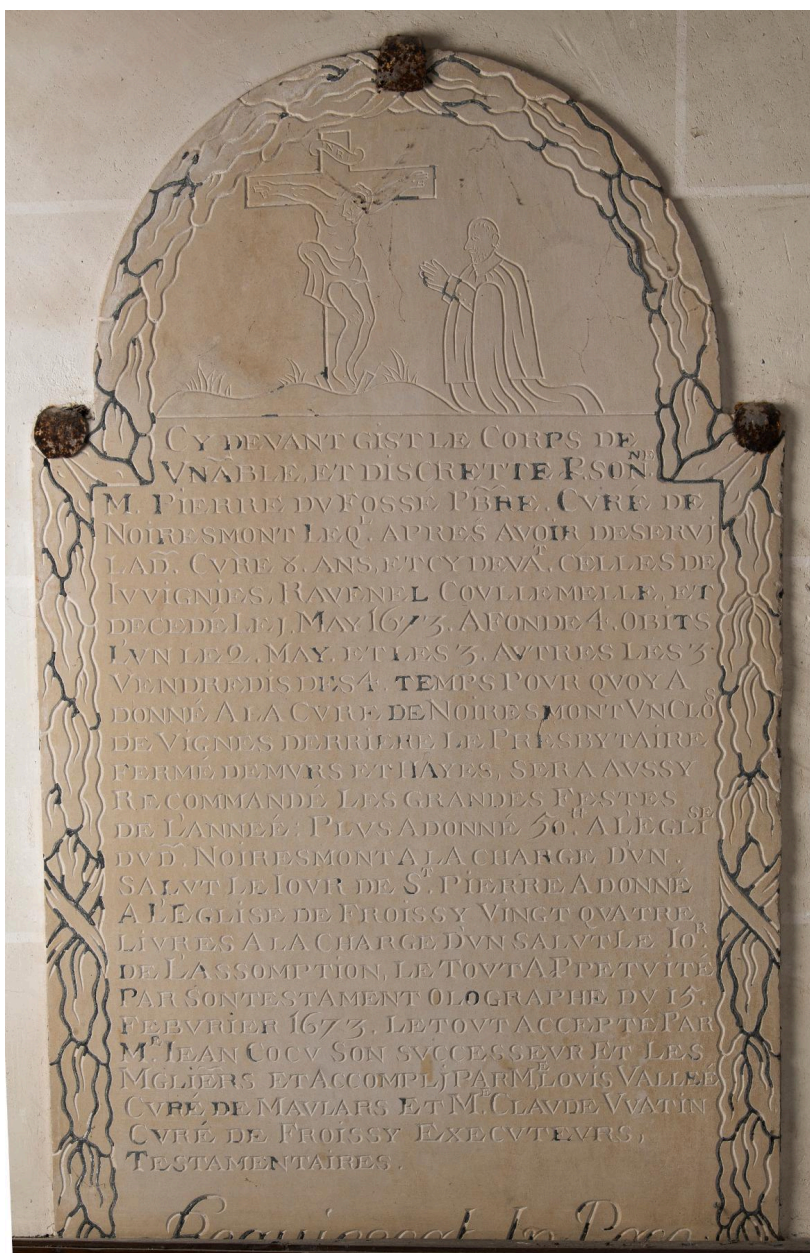 INRI
CY DEVANT GIST LE CORPS DE
VNĀBLE, ET DISCRETTE P.SON.NE
M. PIERRE DV FOSSE PB̃RE. CVRE DE
NOIRESMONT LEQ.L APRES AVOIR DESERVJ
LAD. CVRE 8. ANS, ET CY DEVĀ.T CELLES DE
IVVIGNIES, RAVENEL COVLLEMELLE, ET
DECEDÉ LE J. MAY 1673. A FONDE 4. OBITS
LVN LE 2. MAY. ET LES 3. AVTRES LES 3.
VENDREDIS DES 4. TEMPS POVR QVOY A
DONNÉ A LA CVRE DE NOIRESMONT VN CLOS
DE VIGNES DERRIERE LE PRESBYTAIRE
FERMÉ DE MVRS ET HAYES, SERA AVSSY
RECOMMANDÉ LES GRANDES FESTES
DE L'ANNEÉ: PLVS A DONNÉ 50.tt A LEGLISE
DVD. NOIRESMONT A LA CHARGE D'VN.
SALVT LE IOVR DE S.T PIERRE A DONNÉ
A L'EGLISE DE FROISSY VINGT QVATRE
LIVRES A LA CHARGE D'VN SALVT LE IO.R
DE LASSOMPTION, LE TOVT A PPETVITÉ
PAR SON TESTAMENT OLOGRAPHE DV 15.
FEBVRIER 1673. LE TOVT ACCEPTE PAR
M.E JEAN COCV SON SVCCESSEVR ET LES
MGLIẼRS ET ACCOMPLJ PAR M.E LOVIS VALLEÉ
CVRÉ DE MAVLARS ET M.E CLAVDE VVATIN
CVRÉ DE FROISSY EXECVTEVRS,
TESTAMENTAIRES.
Requiescat In Pace